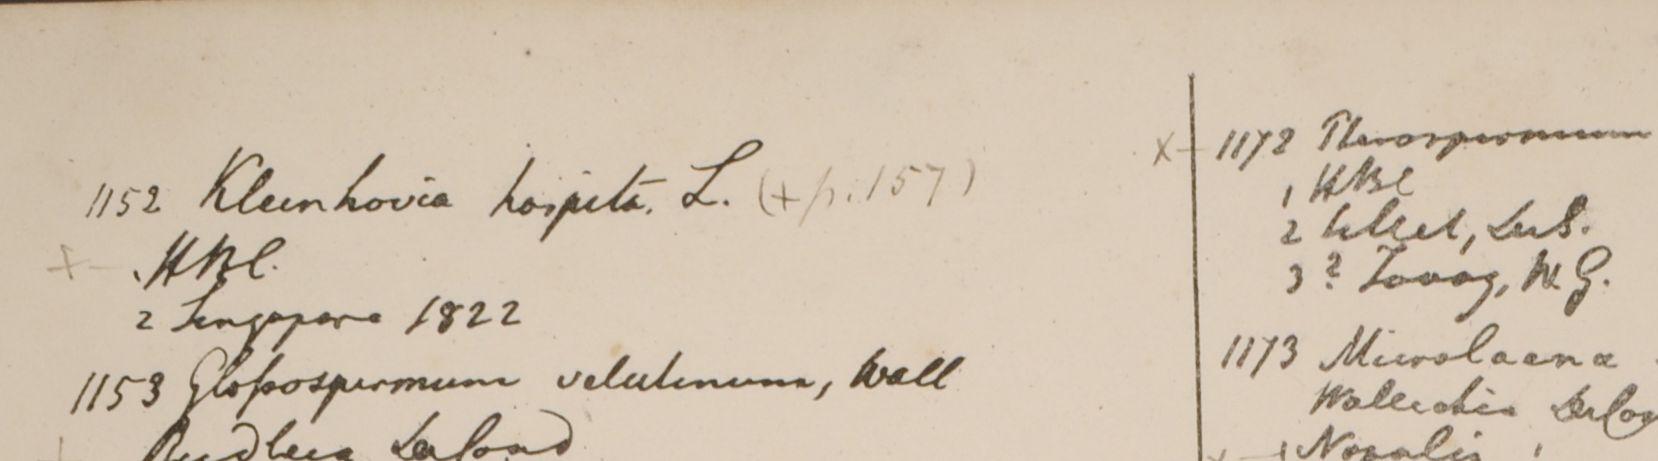 1152 Kleinhovia hospita. L. (+ p. 157)
+ - . HBC.
2 Singapore 1822
1153 Glossospermum velutinum, Wall
x - 1172 Pterospermum
1 HBC
2 Silhet, DeS.
3 ? Tavoy, W. G.
1173 Microlaena
Wallichia
Nepalis